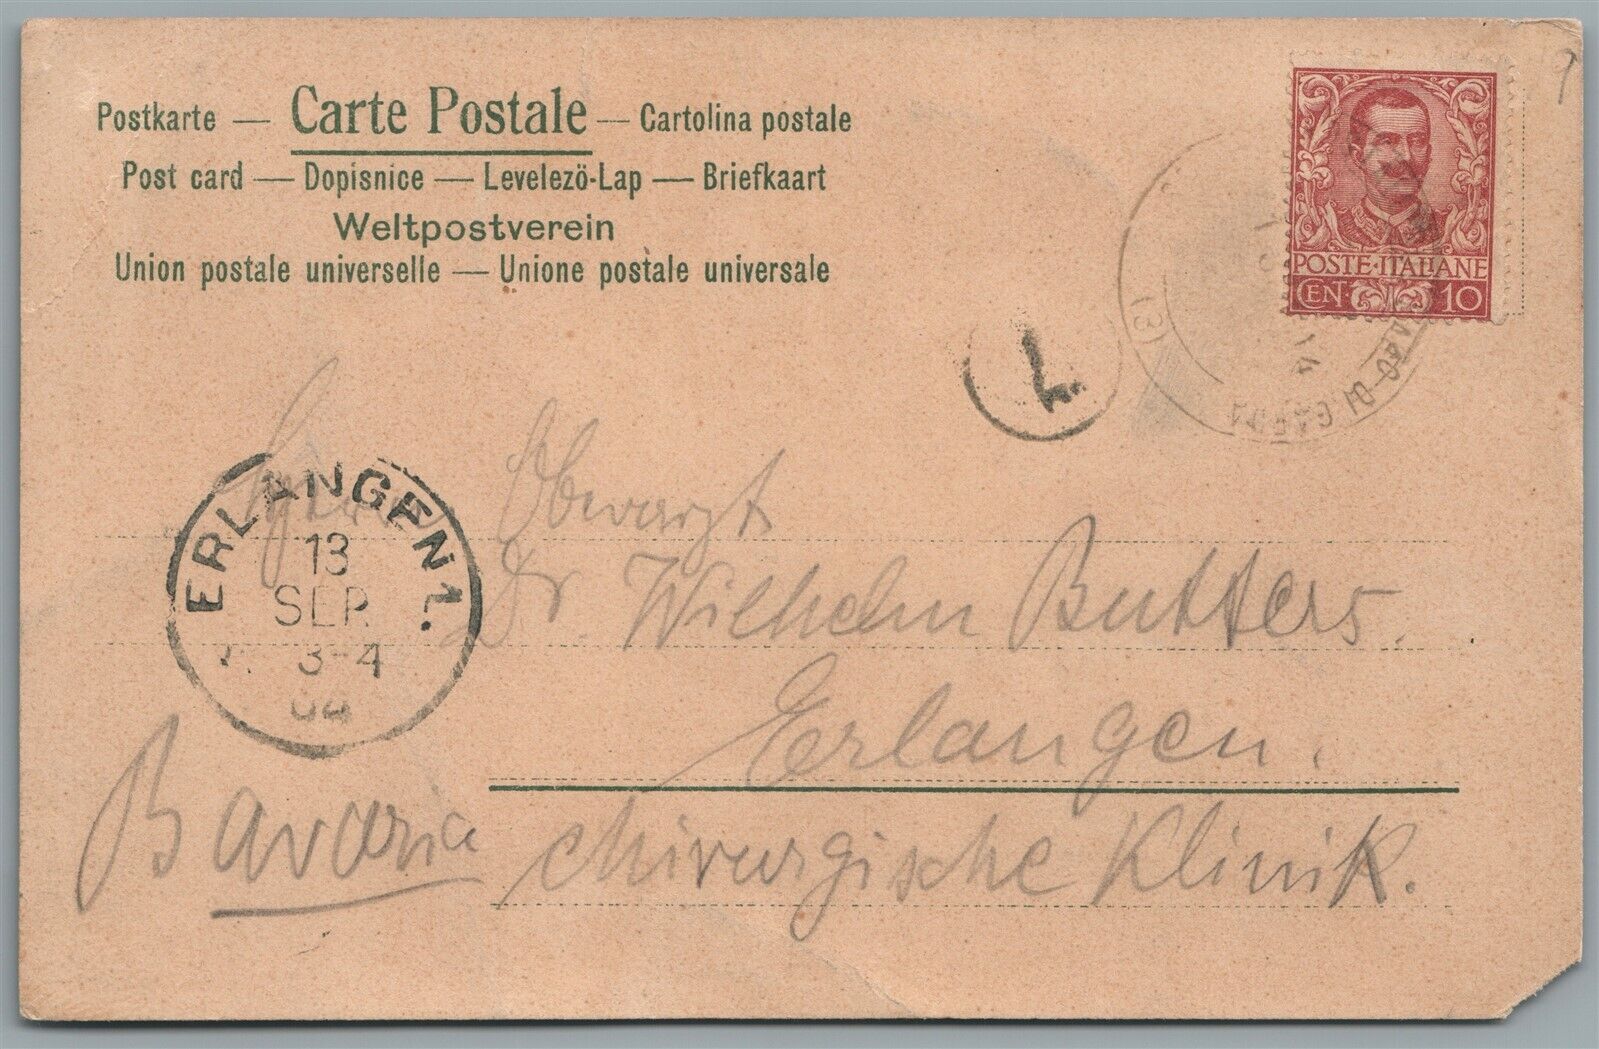 Postkarte — Carte Postale — Cartolina postale
Post card — Dopisnice — Levelezö-Lap — Briefkaart
Weltpostverein
Union postale universelle — Unione postale universale
POSTE·ITALIANE
CEN· 10
(3)
ERLANGEN 1.
13
SEP.
3-4
Herrn Oberarzt
Dr. Wilhelm Butters.
Erlangen.
Bavaria
chirurgische Klinik.